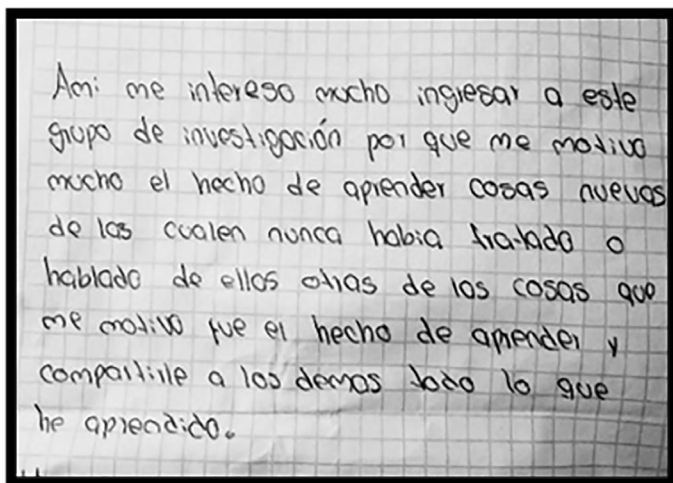 Ami me intereso mucho ingresar a este
grupo de investigación por que me motivo
mucho el hecho de aprender cosas nuevas
de las cualen nunca habia tratado o
hablado de ellas otras de las cosas que
me motivo fue el hecho de aprender y
compartirle a los demas todo lo que
he aprendido.